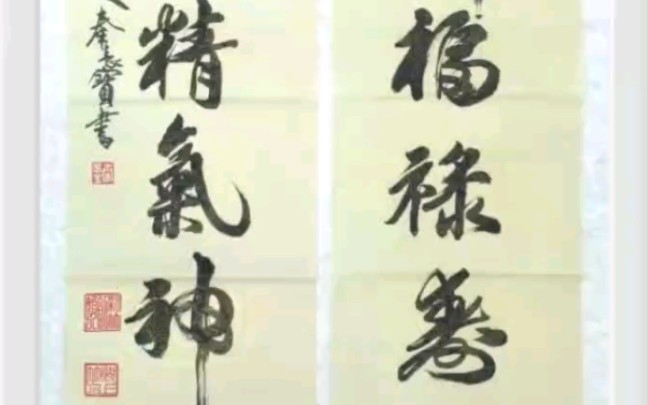 福祿壽
精氣神
秦志寶書